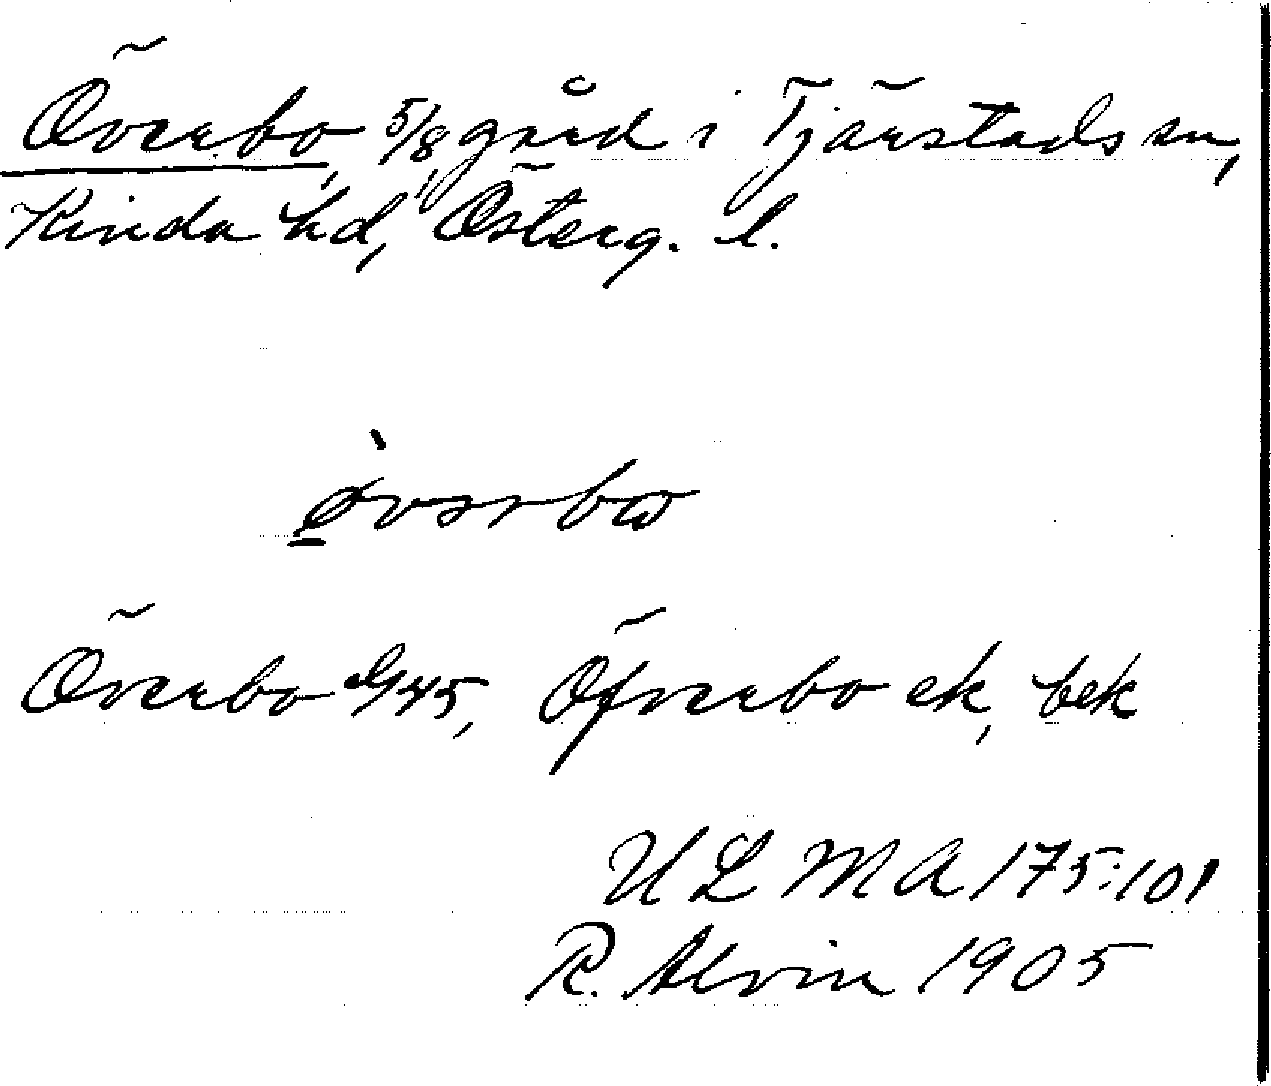 Överbo, 5/8 gård i Tjärstads sn,
Kinda hd, Österg. l.
Överbo 45, Öfverbo ek, bek
ULMA 175:101
R. Alvin 1905